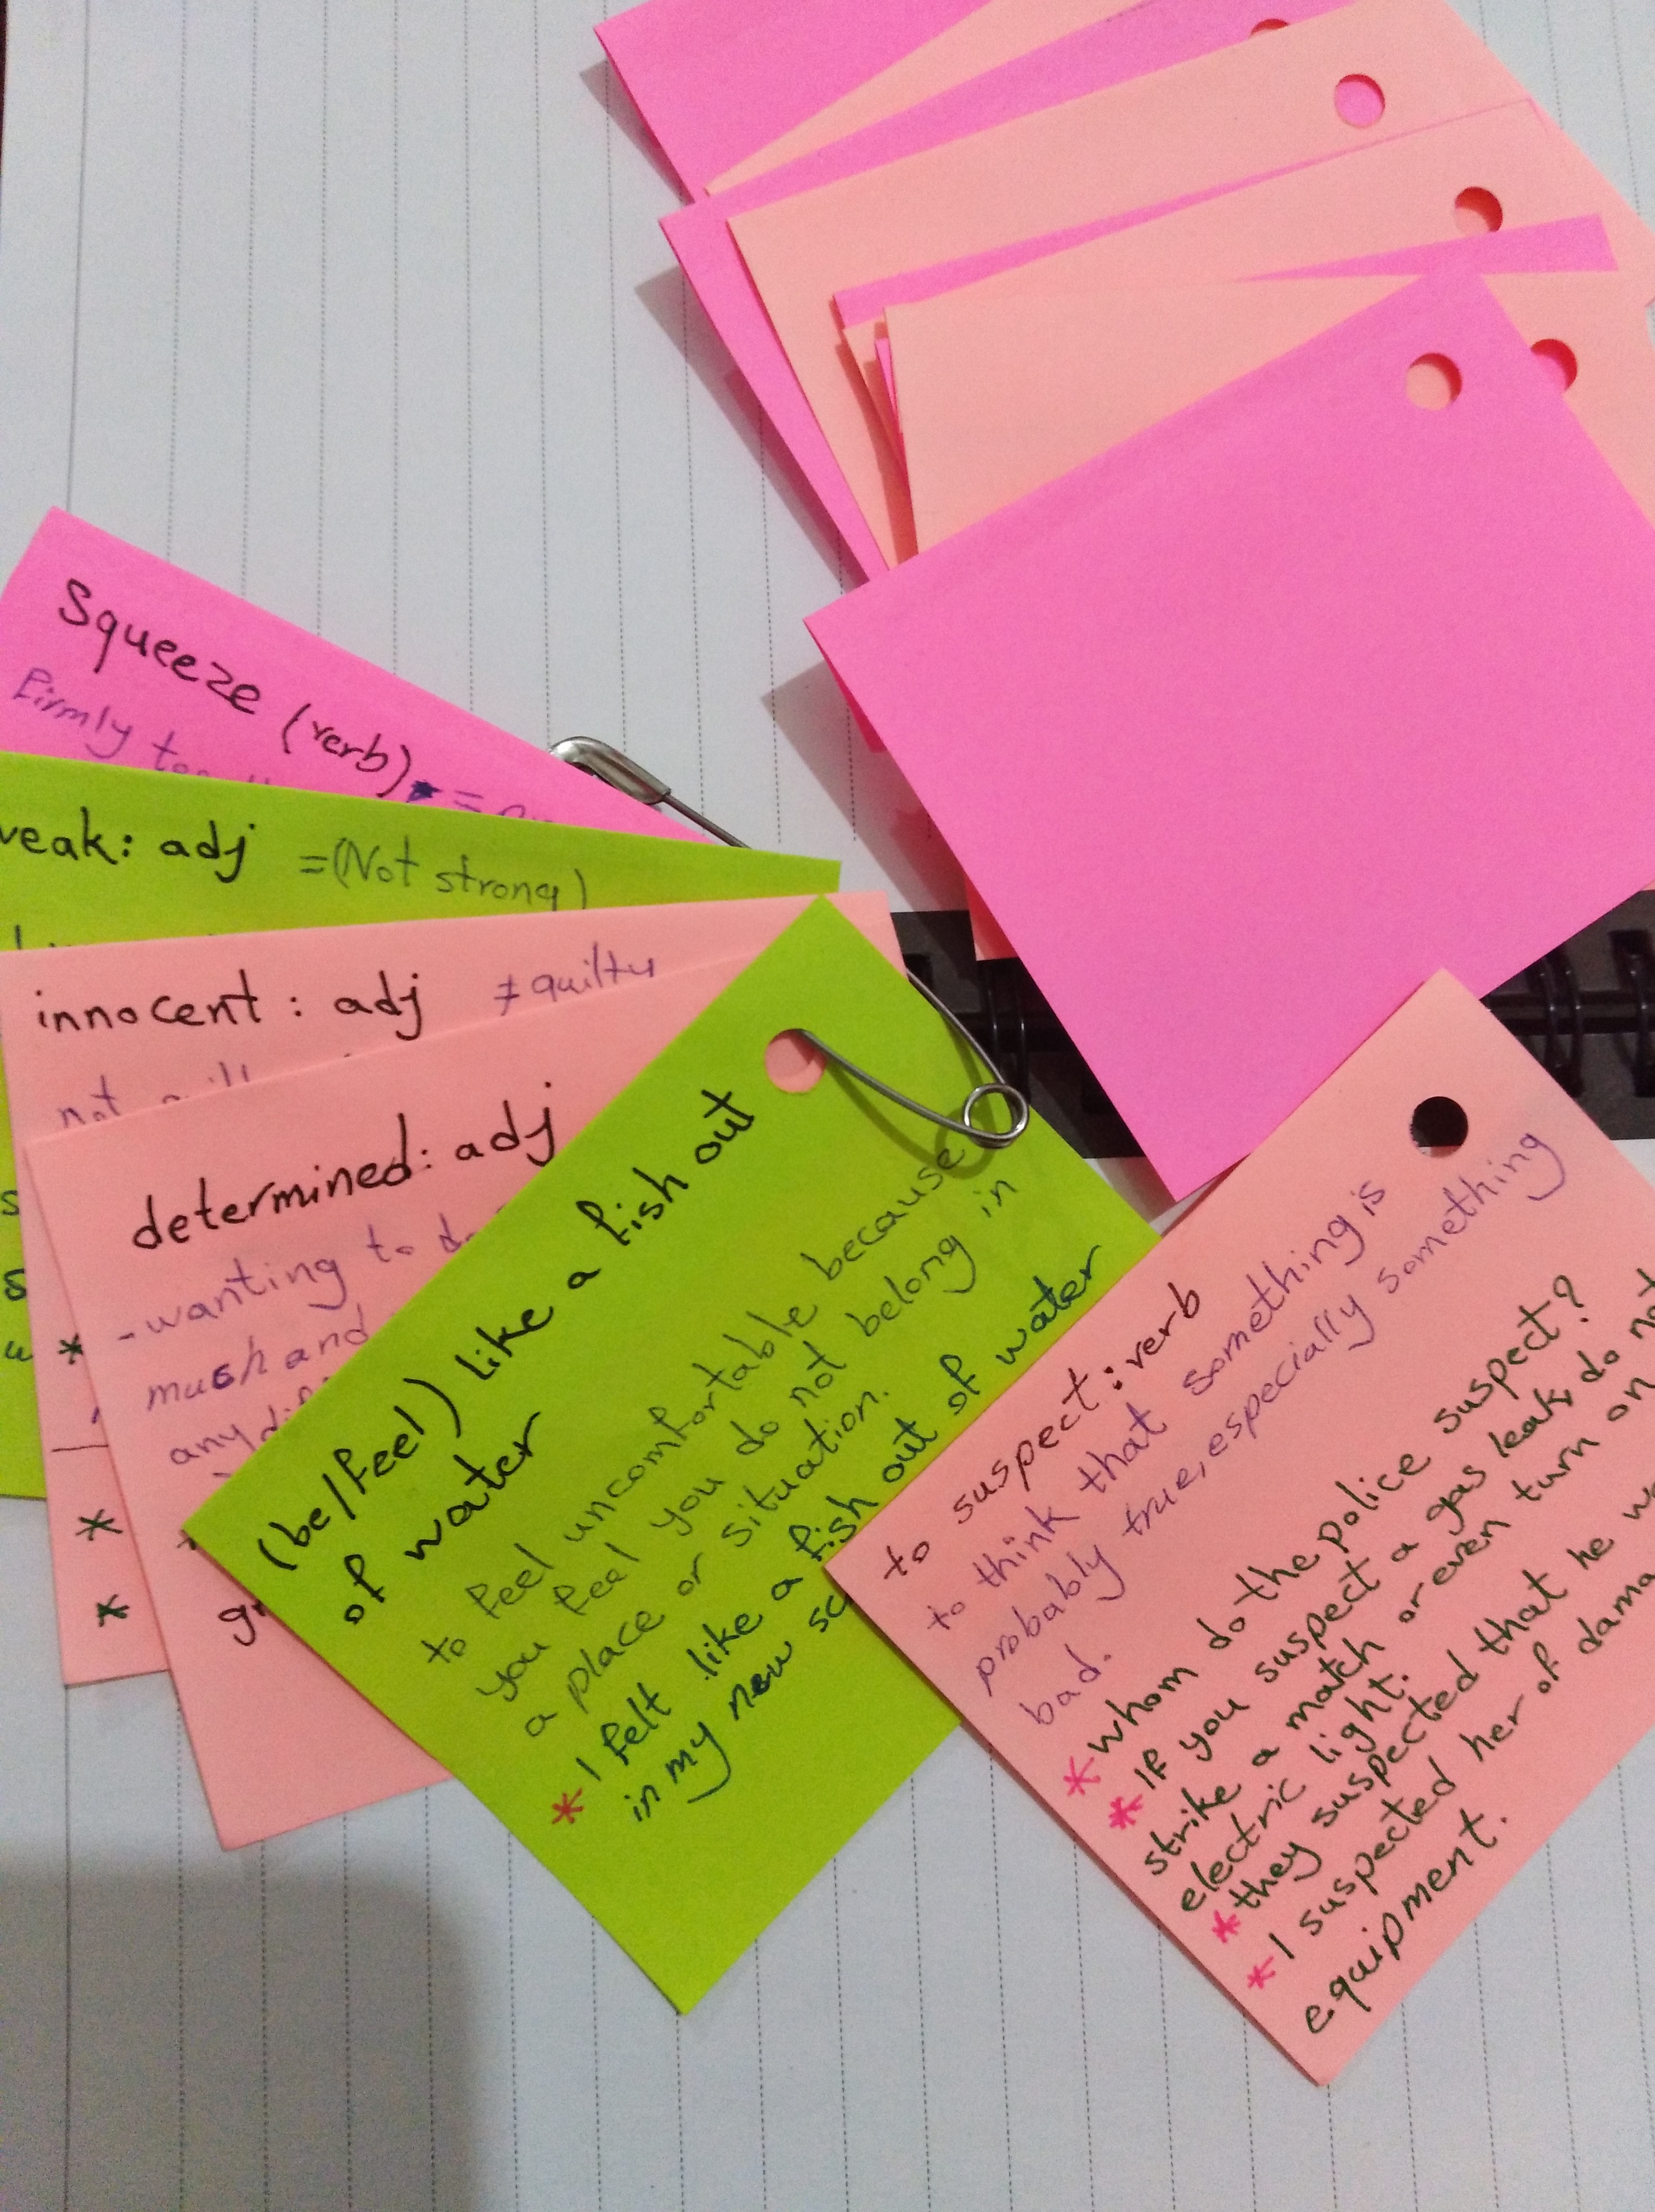 Squeeze (verb) =
firmly
weak: adj =(Not strong)
innocent : adj ≠ guilty
not
determined: adj
-wanting to do
much and
any
(be/feel) like a fish out
of water
to feel uncomfortable because
you feel you do not belong in
a place or situation.
* I felt like a fish out of water
in my new sc
to suspect : verb
to think that something is
probably true, especially something
bad.
* whom do the police suspect?
* If you suspect a gas leak, do not
strike a match or even turn on
electric light.
* they suspected that he w
* I suspected her of dama
equipment.